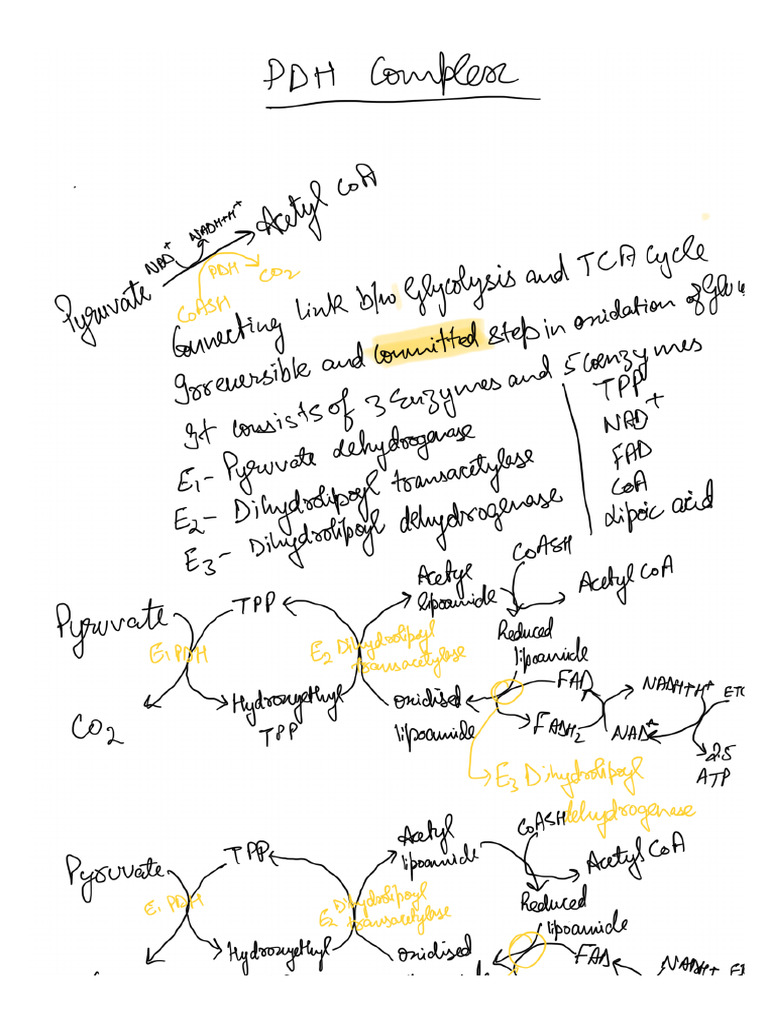 PDH Complex
Pyruvate NAD+ NADH+H+ Acetyl CoA
CoASH PDH CO2
Connecting link b/w Glycolysis and TCA cycle
Irreversible and committed step in oxidation of
It consists of 3 Enzymes and 5 coenzymes
E1- Pyruvate dehydrogenase
E2- Dihydrolipoyl transacetylase
E3- Dihydrolipoyl dehydrogenase
TPP
NAD+
FAD
CoA
Lipoic acid
Pyruvate
E1 PDH
CO2
TPP
Hydroxyethyl
TPP
E2 Dihydrolipoyl
transacetylase
Acetyl
lipoamide
oxidised
lipoamide
CoASH
Acetyl CoA
Reduced
lipoamide
FAD
FADH2
NADH+H+
NAD+
ETC
2.5
ATP
E3 Dihydrolipoyl
dehydrogenase
Pyruvate
E1 PDH
TPP
Hydroxyethyl
Dihydrolipoyl
E2 transacetylase
Acetyl
lipoamide
oxidised
CoASH
Acetyl CoA
Reduced
lipoamide
FAD
NADH+